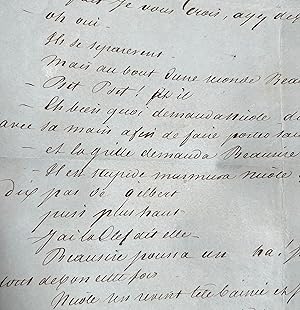 je vous crois, ayez
- oh oui -
Ils se separerent
Mais au bout d'une seconde Beau
- Psit Psit! fit il
- Eh bien quoi demanda nicole du
avec sa main afin de faire porter sa
- et la grille demanda Beausire
- Il est stupide murmura nicole
dix pas de Gilbert
puis plus haut
- J'ai la Clef dit elle -
Beausire poussa un ha!
tout de bon cette fois
nicole s'en revint tête baissée et